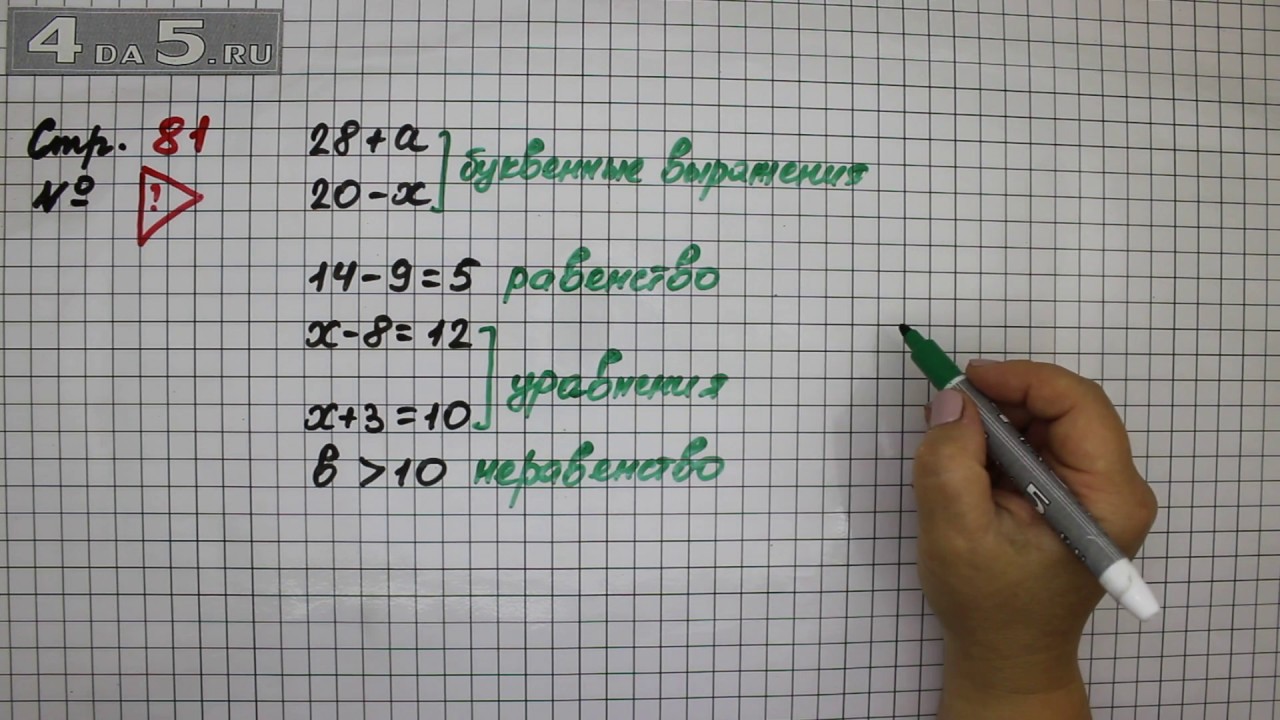 4DA5.RU
Стр. 81
№ ?
28+a
20-x
буквенные выражения
14-9=5 равенство
x-8=12
x+3=10
уравнения
в >10 неравенство
5